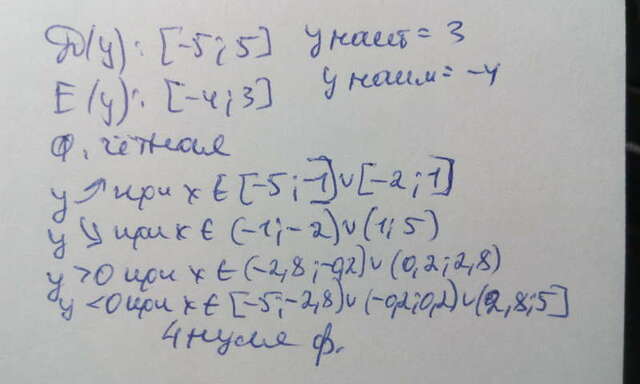 D(y): [-5;5] y наиб = 3
E(y): [-4;3] y наим = -4
ф. чётная
y ↗ при x ∈ [-5;-1] ∪ [-2;1]
y ↘ при x ∈ (-1;-2) ∪ (1;5)
y >0 при x ∈ (-2,8;-0,2) ∪ (0,2;2,8)
y <0 при x ∈ [-5;-2,8) ∪ (-0,2;0,2) ∪ (2,8;5]
4 нуля ф.